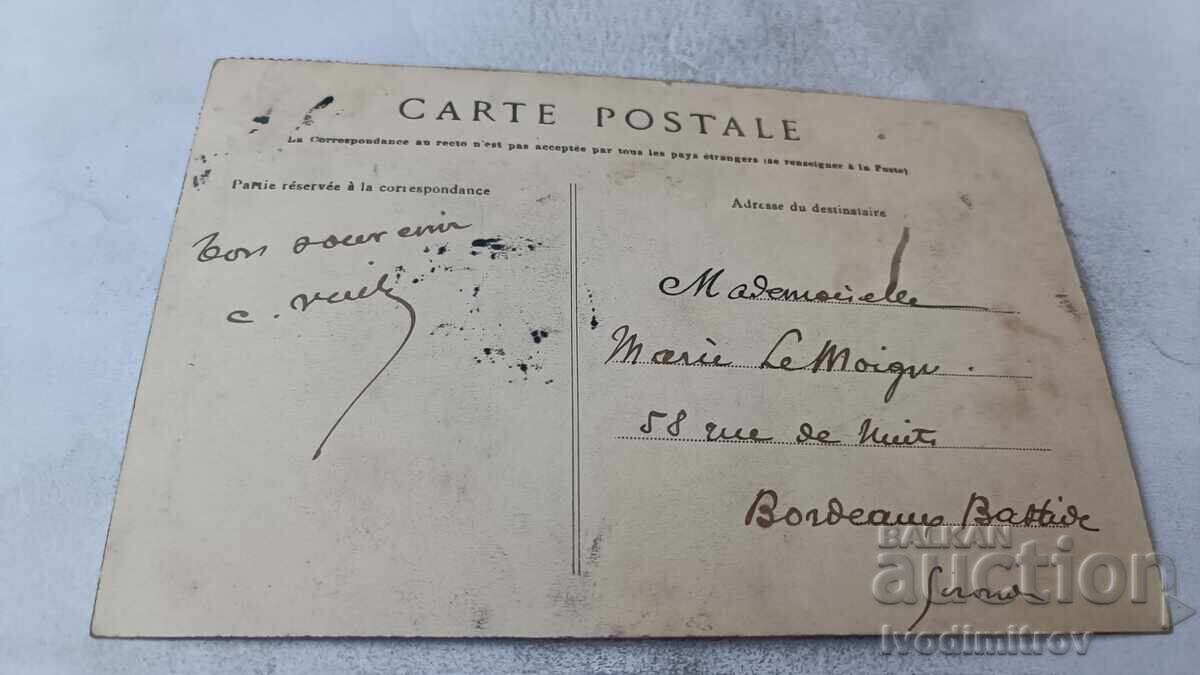 CARTE POSTALE
La Correspondance au recto n'est pas acceptée par tous les pays étrangers (se renseigner à la Poste)
Partie réservée à la correspondance
Bon souvenir
c.
Adresse du destinataire
Mademoiselle
Marie Le Moign
58 rue de Nuits
Bordeaux Bastide
Gironde
BALKAN
auction
Ivodimitrov